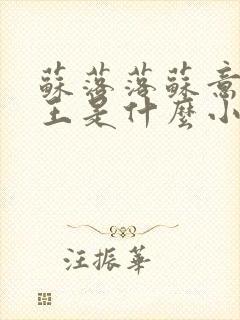 蘇落落蘇意
王是什麼小
汪振華